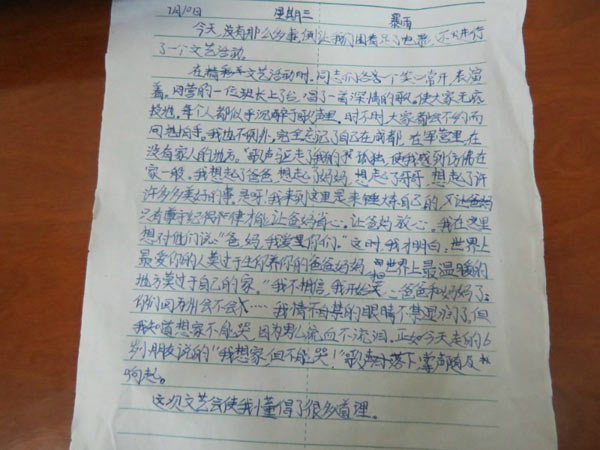 7月10日 星期三 暴雨
今天,没有那么多事,但让我们围着
了一个文艺活动。
在精彩的文艺活动时,同志们各各个笑口常开,表演
着。同营的一位班长上了台,唱了一首深情的歌。使大家无疲
每个人都似乎沉醉于歌声里。时不时大家都不约而
同地拍手。我也不例外,完全忘记了自己在成都,在军营里,在
没有家人的地方。歌声我的孤独,使我感到仿佛在
家一般。我想起了爸爸,想起了妈妈,想起了哥哥,想起了许
许多多美好的事,是呀!我来到这里是来锻炼自己的,
只有才能让爸妈省心,让爸妈放心。我在这里
想对他们说:“爸妈,我爱你们。”这时,我才明白,世界上
最爱你的人莫过于生你养你的爸爸妈妈,世界上最温暖的
地方莫过于自己的家。“我不相信,我开始哭爸爸和妈妈了;
你们会不会……我情不自禁的眼睛不禁湿润了,但
我知道想家不能哭,因为男儿流血不流泪,正如今天走的6
岁小朋友说的“我想家,但不能哭!”歌声落下,掌声随
响起。
这次文艺会使我懂得了很多道理。